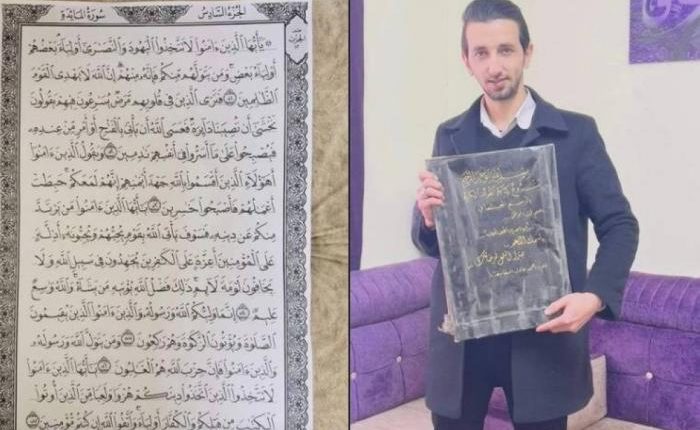 سورة المائدة الجزء السادس
۞ يَٰٓأَيُّهَا ٱلَّذِينَ ءَامَنُوا۟ لَا تَتَّخِذُوا۟ ٱلْيَهُودَ وَٱلنَّصَٰرَىٰٓ أَوْلِيَآءَ بَعْضُهُمْ
أَوْلِيَآءُ بَعْضٍ وَمَن يَتَوَلَّهُم مِّنكُمْ فَإِنَّهُۥ مِنْهُمْ إِنَّ ٱللَّهَ لَا يَهْدِى ٱلْقَوْمَ
ٱلظَّٰلِمِينَ ٥١ فَتَرَى ٱلَّذِينَ فِى قُلُوبِهِم مَّرَضٌ يُسَٰرِعُونَ فِيهِمْ يَقُولُونَ
نَخْشَىٰٓ أَن تُصِيبَنَا دَآئِرَةٌ فَعَسَى ٱللَّهُ أَن يَأْتِىَ بِٱلْفَتْحِ أَوْ أَمْرٍ مِّنْ عِندِهِۦ
فَيُصْبِحُوا۟ عَلَىٰ مَآ أَسَرُّوا۟ فِىٓ أَنفُسِهِمْ نَٰدِمِينَ ٥٢ وَيَقُولُ ٱلَّذِينَ ءَامَنُوٓا۟
أَهَٰٓؤُلَآءِ ٱلَّذِينَ أَقْسَمُوا۟ بِٱللَّهِ جَهْدَ أَيْمَٰنِهِمْ إِنَّهُمْ لَمَعَكُمْ حَبِطَتْ
أَعْمَٰلُهُمْ فَأَصْبَحُوا۟ خَٰسِرِينَ ٥٣ يَٰٓأَيُّهَا ٱلَّذِينَ ءَامَنُوا۟ مَن يَرْتَدَّ
مِنكُمْ عَن دِينِهِۦ فَسَوْفَ يَأْتِى ٱللَّهُ بِقَوْمٍ يُحِبُّهُمْ وَيُحِبُّونَهُۥٓ أَذِلَّةٍ
عَلَى ٱلْمُؤْمِنِينَ أَعِزَّةٍ عَلَى ٱلْكَٰفِرِينَ يُجَٰهِدُونَ فِى سَبِيلِ ٱللَّهِ وَلَا
يَخَافُونَ لَوْمَةَ لَآئِمٍ ذَٰلِكَ فَضْلُ ٱللَّهِ يُؤْتِيهِ مَن يَشَآءُ وَٱللَّهُ وَٰسِعٌ
عَلِيمٌ ٥٤ إِنَّمَا وَلِيُّكُمُ ٱللَّهُ وَرَسُولُهُۥ وَٱلَّذِينَ ءَامَنُوا۟ ٱلَّذِينَ يُقِيمُونَ
ٱلصَّلَوٰةَ وَيُؤْتُونَ ٱلزَّكَوٰةَ وَهُمْ رَٰكِعُونَ ٥٥ وَمَن يَتَوَلَّ ٱللَّهَ وَرَسُولَهُۥ
وَٱلَّذِينَ ءَامَنُوا۟ فَإِنَّ حِزْبَ ٱللَّهِ هُمُ ٱلْغَٰلِبُونَ ٥٦ يَٰٓأَيُّهَا ٱلَّذِينَ ءَامَنُوا۟
لَا تَتَّخِذُوا۟ ٱلَّذِينَ ٱتَّخَذُوا۟ دِينَكُمْ هُزُوًا وَلَعِبًا مِّنَ ٱلَّذِينَ أُوتُوا۟
ٱلْكِتَٰبَ مِن قَبْلِكُمْ وَٱلْكُفَّارَ أَوْلِيَآءَ وَٱتَّقُوا۟ ٱللَّهَ إِن كُنتُم مُّؤْمِنِينَ ٥٧